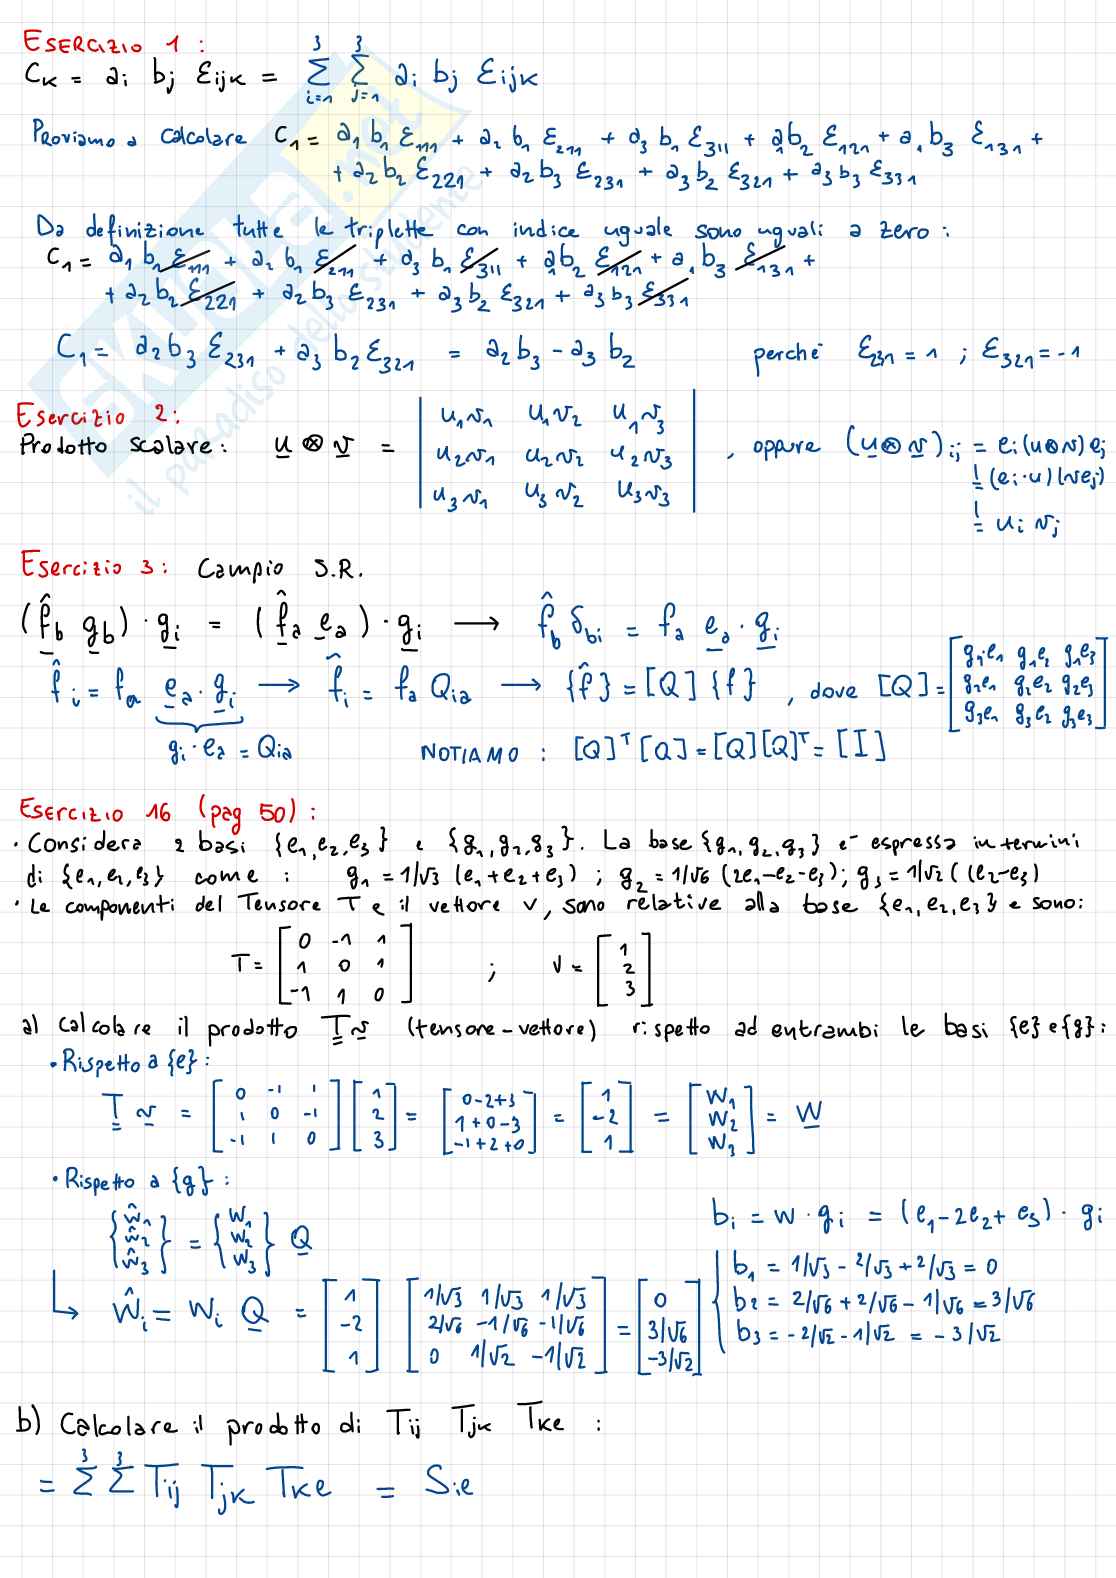 ESERCIZIO 1 :
Cₖ = aᵢ bⱼ Ɛᵢⱼₖ = ∑³ᵢ₌₁ ∑³ⱼ₌₁ aᵢ bⱼ Ɛᵢⱼₖ
Proviamo a calcolare C₁ = a₁ b₁ Ɛ₁₁₁ + a₂ b₁ Ɛ₂₁₁ + a₃ b₁ Ɛ₃₁₁ + a₁b₂ Ɛ₁₂₁ + a₁ b₃ Ɛ₁₃₁ +
+ a₂ b₂ Ɛ₂₂₁ + a₂ b₃ Ɛ₂₃₁ + a₃ b₂ Ɛ₃₂₁ + a₃ b₃ Ɛ₃₃₁
Da definizione tutte le triplette con indice uguale sono uguali a zero :
C₁ = a₁ b₁ Ɛ₁₁₁ + a₂ b₁ Ɛ₂₁₁ + a₃ b₁ Ɛ₃₁₁ + a₁b₂ Ɛ₁₂₁ + a₁ b₃ Ɛ₁₃₁ +
+ a₂ b₂ Ɛ₂₂₁ + a₂ b₃ Ɛ₂₃₁ + a₃ b₂ Ɛ₃₂₁ + a₃ b₃ Ɛ₃₃₁
C₁ = a₂b₃ Ɛ₂₃₁ + a₃ b₂ Ɛ₃₂₁ = a₂ b₃ - a₃ b₂ perché Ɛ₂₃₁ = 1 ; Ɛ₃₂₁ = -1
Esercizio 2:
Prodotto scalare: u ⊗ v = | u₁v₁ u₁v₂ u₁v₃ | , oppure (u⊗v)ᵢⱼ = eᵢ(u⊗v)eⱼ
| u₂v₁ u₂v₂ u₂v₃ | = (eᵢ·u)(veⱼ)
| u₃v₁ u₃v₂ u₃v₃ | = uᵢ vⱼ
Esercizio 3: Campio S.R.
(f̂_b g_b) · gᵢ = (f̂ₐ eₐ) · gᵢ → f̂_b δ_bi = fₐ eₐ · gᵢ
f̂ᵢ = fₐ eₐ · gᵢ → f̂ᵢ = fₐ Qᵢₐ → {f̂} = [Q] {f} , dove [Q] = [g₁e₁ g₁e₂ g₁e₃
g₂e₁ g₂e₂ g₂e₃
g₃e₁ g₃e₂ g₃e₃]
gᵢ · eₐ = Qᵢₐ NOTIAMO : [Q]ᵀ [Q] = [Q][Q]ᵀ = [I]
Esercizio 16 (pag 50) :
· Considera 2 basi {e₁,e₂,e₃} e {g₁,g₂,g₃}. La base {g₁,g₂,g₃} e- espressa in termini
di {e₁,e₂,e₃} come : g₁ = 1/√3 (e₁+e₂+e₃) ; g₂ = 1/√6 (2e₁-e₂-e₃); g₃ = 1/√2 ((e₂-e₃)
· Le componenti del Tensore T e il vettore v, sono relative alla base {e₁,e₂,e₃} e sono:
T = [0 -1 1
1 0 1
-1 1 0] ; v = [1
2
3]
a) calcolare il prodotto T v (tensore-vettore) rispetto ad entrambi le basi {e} e {g} :
· Rispetto a {e} :
T v = [0 -1 1
1 0 -1
-1 1 0] [1
2
3] = [0-2+3
1+0-3
-1+2+0] = [1
-2
1] = [w₁
w₂
w₃] = w
· Rispetto a {g} :
{ŵ₁
ŵ₂
ŵ₃} = {w₁
w₂
w₃} Q
bᵢ = w · gᵢ = (e₁-2e₂+e₃) · gᵢ
↳ ŵᵢ = wᵢ Q = [1
-2
1] [1/√3 1/√3 1/√3
2/√6 -1/√6 -1/√6
0 1/√2 -1/√2] = [0
3/√6
-3/√2]
b₁ = 1/√3 - 2/√3 + 2/√3 = 0
b₂ = 2/√6 + 2/√6 - 1/√6 = 3/√6
b₃ = -2/√2 - 1/√2 = -3/√2
b) Calcolare il prodotto di Tᵢⱼ Tⱼₖ Tₖₑ :
= ∑³ ∑³ Tᵢⱼ Tⱼₖ Tₖₑ = Sᵢₑ
SKUOLA.net
il paradiso dello studente